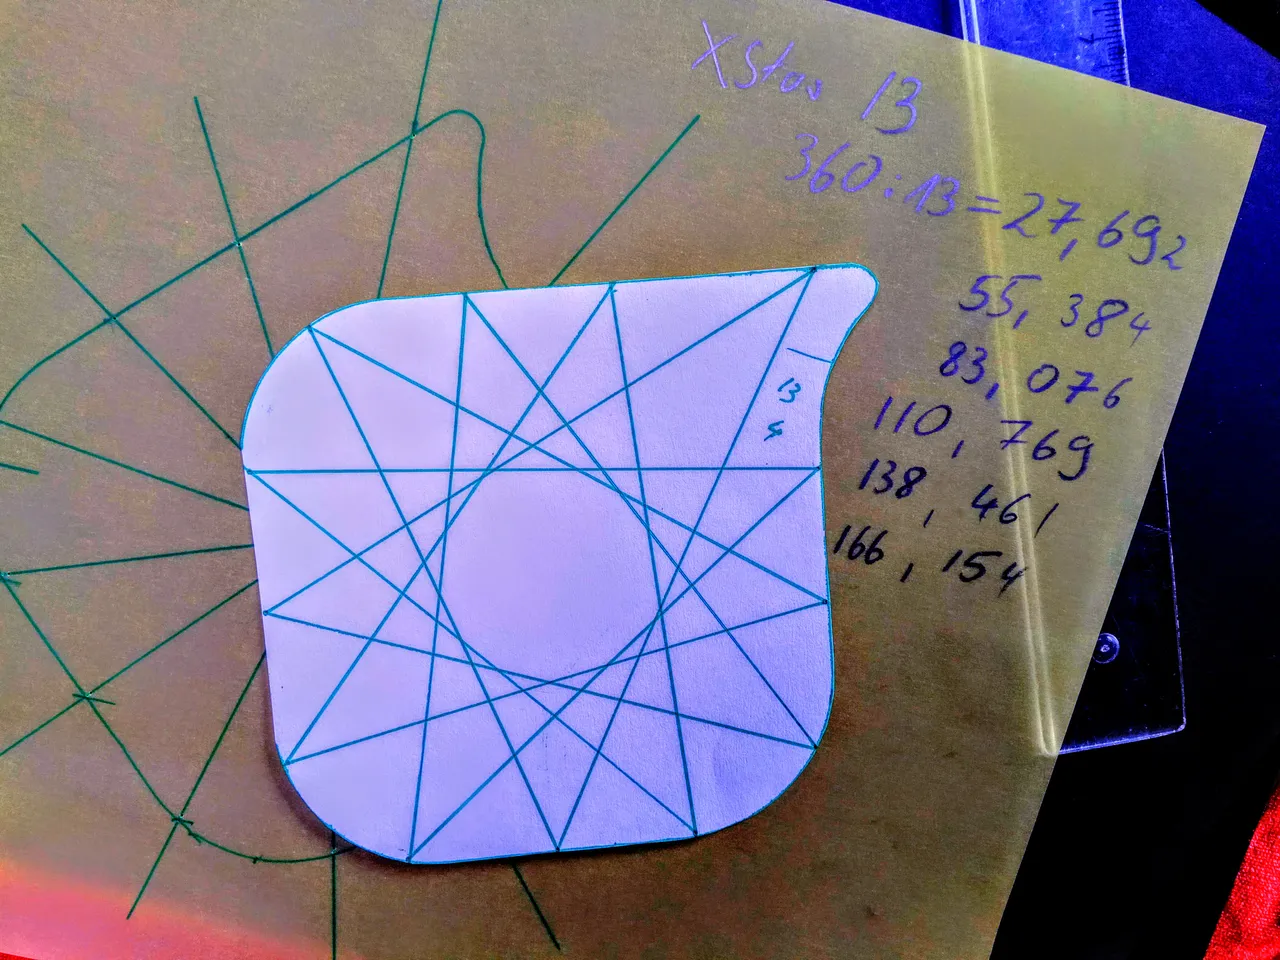 XStar 13
360:13=27,692
55,384
83,076
110,769
138,461
166,154
13
4